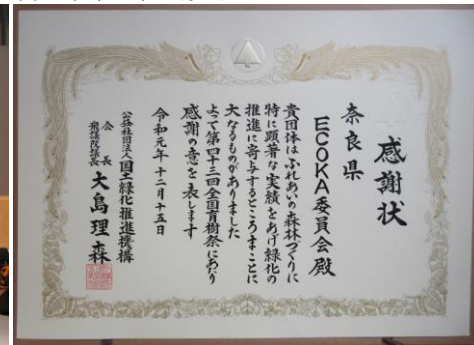 感謝状
奈良県
ECOKA委員会殿
貴団体はふれあいの森林づくりに
特に顕著な実績をあげ緑化の
推進に寄与するところまことに
大なるものがありました
よって第四十三回全国育樹祭にあたり
感謝の意を表します
令和元年十二月十五日
公益社団法人国土緑化推進機構
会長
衆議院議長 大島理森